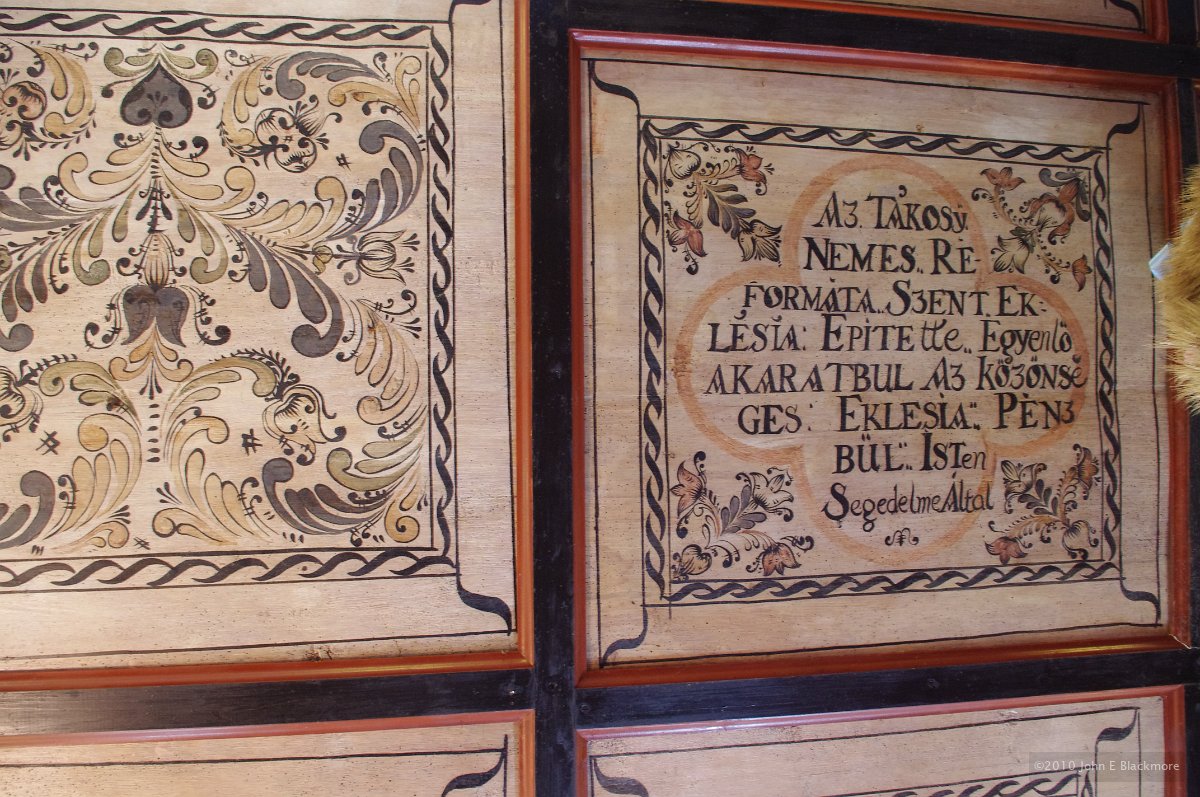 Aʒ. TÁKOSÿ
NEMES.. RE-
FORMÁTA.. SʒENT. EK-
LÉSIA: EPITEtte.. Egyenlö
AKARATBUL Aʒ KÖʒÖNSÉ
GES: EKLESIA.. PÉNʒ
BÜL.. ISTen
SegedelmeÁltal
©2010 John E Blackmore